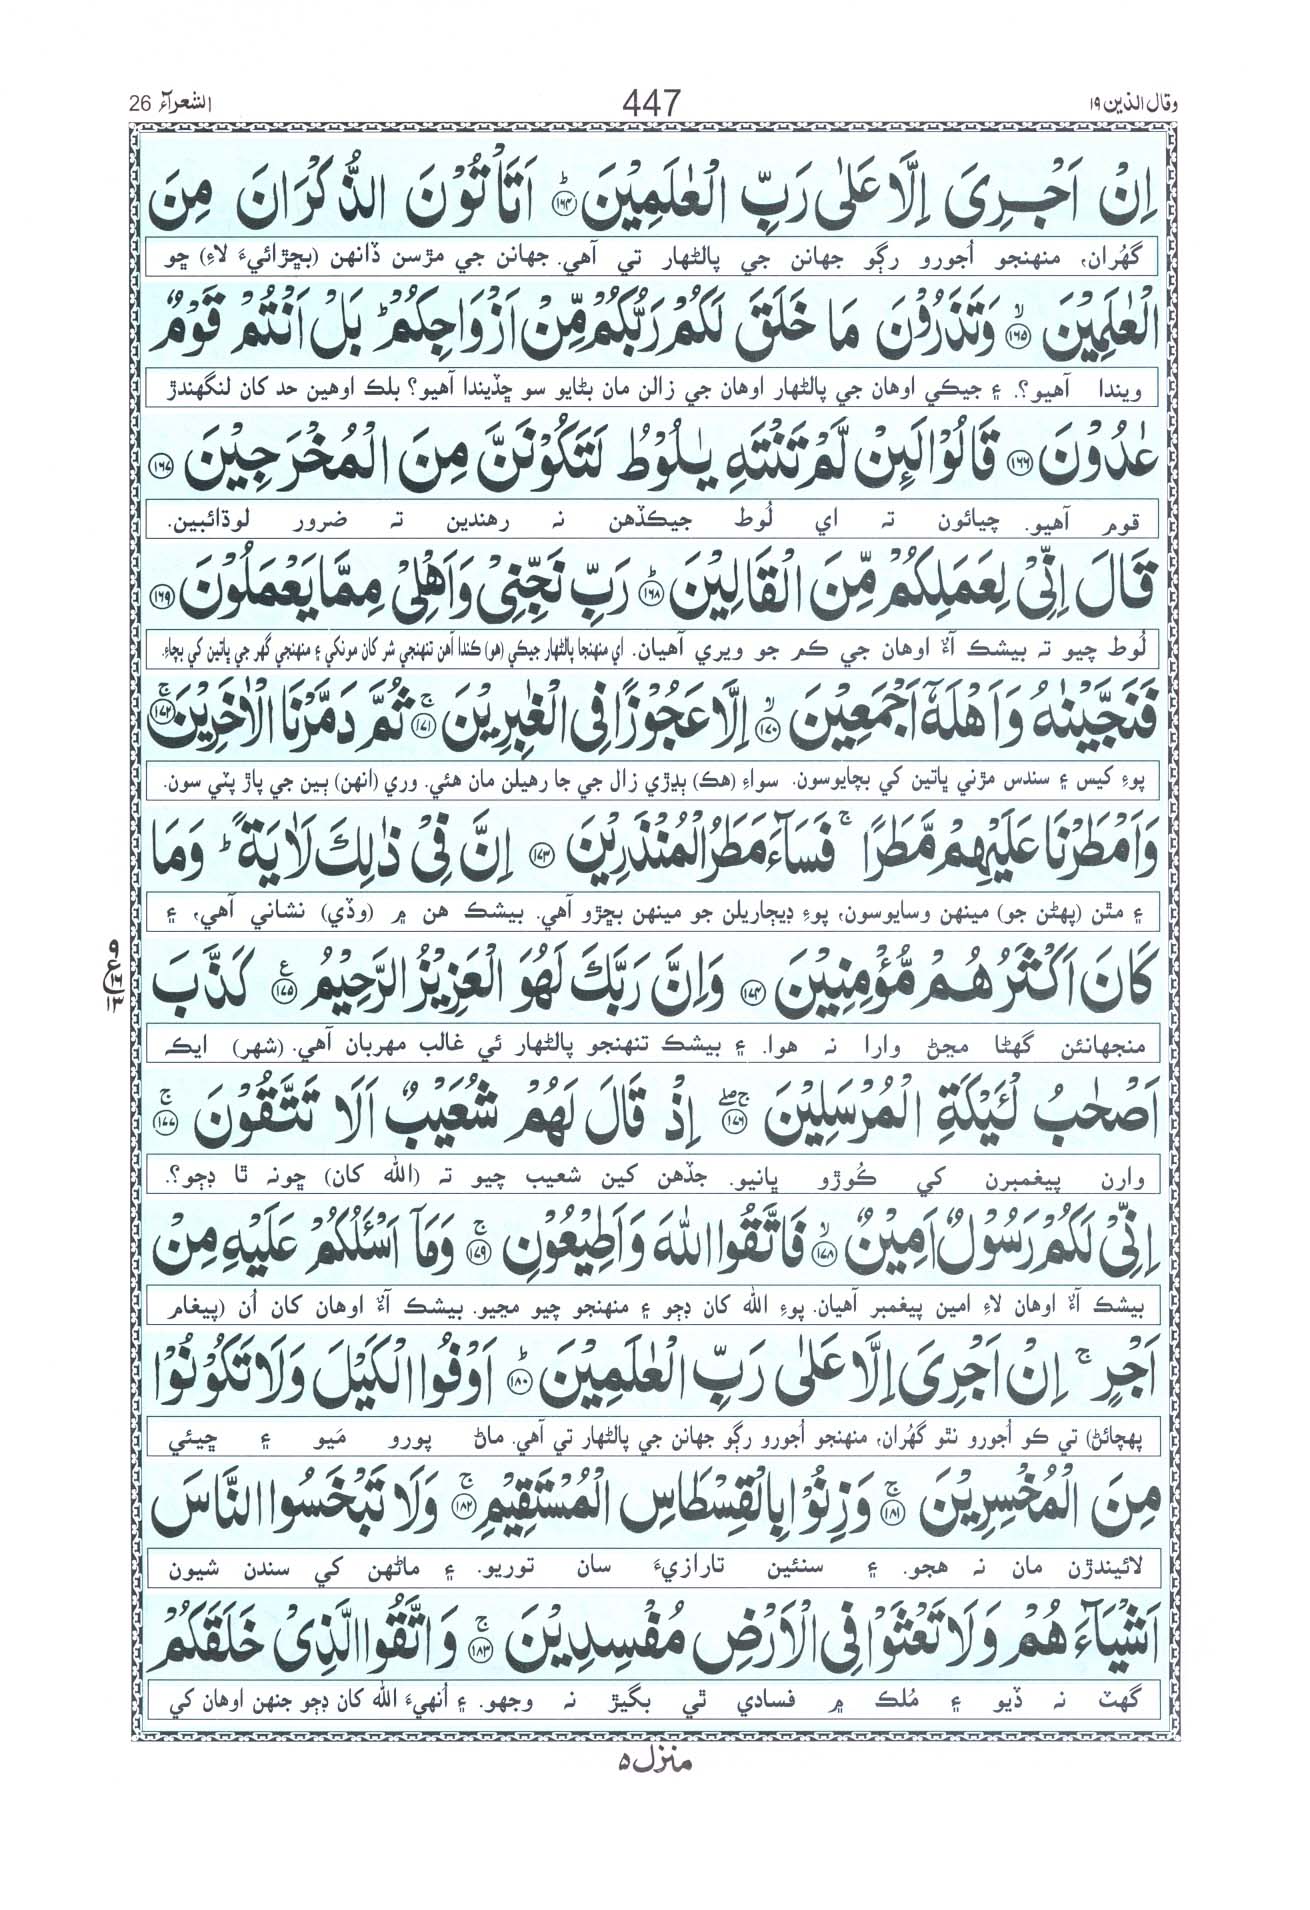 وقال الذین ۱۹ 447 الشعرآء 26
اِنْ اَجْرِیَ اِلَّا عَلٰی رَبِّ الْعٰلَمِیْنَ ؕ﴿۱۶۴﴾ اَتَاْتُوْنَ الذُّکْرَانَ مِنَ
گھُران، منھنجو اُجورو رڳو جھانن جي پالڻھار تي آھي. جھانن جي مڙسن ڏانھن (بڇڙائيءَ لاءِ) ڇو
الْعٰلَمِیْنَ ﴿۱۶۵﴾ۙ وَتَذَرُوْنَ مَا خَلَقَ لَکُمْ رَبُّکُمْ مِّنْ اَزْوَاجِکُمْ ؕ بَلْ اَنْتُمْ قَوْمٌ
ويندا آھيو؟. ۽ جيڪي اوھان جي پالڻھار اوھان جي زالن مان بڻايو سو ڇڏيندا آھيو؟ بلڪ اوھين حد کان لنگھندڙ
عٰدُوْنَ ﴿۱۶۶﴾ قَالُوْا لَئِنْ لَّمْ تَنْتَهِ یٰلُوْطُ لَتَکُوْنَنَّ مِنَ الْمُخْرَجِیْنَ ﴿۱۶۷﴾
قوم آھيو. چيائون تہ اي لُوط جيڪڏھن نہ رھندين تہ ضرور لوڌائبين.
قَالَ اِنِّیْ لِعَمَلِکُمْ مِّنَ الْقَالِیْنَ ؕ﴿۱۶۸﴾ رَبِّ نَجِّنِیْ وَاَهْلِیْ مِمَّا یَعْمَلُوْنَ ﴿۱۶۹﴾
لُوط چيو تہ بيشڪ آءٌ اوھان جي ڪم جو ويري آھيان. اي منھنجا پالڻھار جيڪي (ھو) ڪندا آھن تنھنجي شر کان مونکي ۽ منھنجي گھر جي ڀاتين کي بچاءِ.
فَنَجَّیْنٰهُ وَاَهْلَهٗۤ اَجْمَعِیْنَ ﴿۱۷۰﴾ۙ اِلَّا عَجُوْزًا فِی الْغٰبِرِیْنَ ﴿۱۷۱﴾ۚ ثُمَّ دَمَّرْنَا الْاٰخَرِیْنَ ﴿۱۷۲﴾ۚ
پوءِ کيس ۽ سندس مڙني ڀاتين کي بچايوسون. سواءِ (ھڪ) ٻڍڙي زال جي جا رھيلن مان ھئي. وري (انھن) ٻين جي پاڙ پٽي سون.
وَاَمْطَرْنَا عَلَیْهِمْ مَّطَرًا ۚ فَسَآءَ مَطَرُ الْمُنْذَرِیْنَ ﴿۱۷۳﴾ اِنَّ فِیْ ذٰلِکَ لَاٰیَةً ؕ وَمَا
۽ مٿن (پھڻن جو) مينھن وسايوسون، پوءِ ڊيڄاريلن جو مينھن بڇڙو آھي. بيشڪ ھن ۾ (وڏي) نشاني آھي، ۽
کَانَ اَکْثَرُهُمْ مُّؤْمِنِیْنَ ﴿۱۷۴﴾ وَاِنَّ رَبَّکَ لَهُوَ الْعَزِیْزُ الرَّحِیْمُ ﴿۱۷۵﴾ع کَذَّبَ
منجھانئن گھڻا مڃڻ وارا نہ ھوا. ۽ بيشڪ تنھنجو پالڻھار ئي غالب مھربان آھي. (شھر) ايڪہ
اَصْحٰبُ لْئَیْکَةِ الْمُرْسَلِیْنَ ﴿۱۷۶﴾ اِذْ قَالَ لَهُمْ شُعَیْبٌ اَلَا تَتَّقُوْنَ ﴿۱۷۷﴾ۚ
وارن پيغمبرن کي ڪُوڙو ڀانيو. جڏھن کين شعيب چيو تہ (الله کان) ڇونہ ٿا ڊڄو؟.
اِنِّیْ لَکُمْ رَسُوْلٌ اَمِیْنٌ ﴿۱۷۸﴾ۙ فَاتَّقُوا اللهَ وَاَطِیْعُوْنِ ﴿۱۷۹﴾ۚ وَمَاۤ اَسْـَٔلُکُمْ عَلَیْهِ مِنْ
بيشڪ آءٌ اوھان لاءِ امين پيغمبر آھيان. پوءِ الله کان ڊڄو ۽ منھنجو چيو مڃيو. بيشڪ آءٌ اوھان کان اُن (پيغام
اَجْرٍ ۚ اِنْ اَجْرِیَ اِلَّا عَلٰی رَبِّ الْعٰلَمِیْنَ ؕ﴿۱۸۰﴾ اَوْفُوا الْکَیْلَ وَلَا تَکُوْنُوْا
پھچائڻ) تي ڪو اُجورو نٿو گھُران، منھنجو اُجورو رڳو جھانن جي پالڻھار تي آھي. ماڻ پورو مَيو ۽ ڇيئي
مِنَ الْمُخْسِرِیْنَ ﴿۱۸۱﴾ۚ وَزِنُوْا بِالْقِسْطَاسِ الْمُسْتَقِیْمِ ﴿۱۸۲﴾ۚ وَلَا تَبْخَسُوا النَّاسَ
لائيندڙن مان نہ ھجو. ۽ سنئين تارازيءَ سان توريو. ۽ ماڻھن کي سندن شيون
اَشْیَآءَهُمْ وَلَا تَعْثَوْا فِی الْاَرْضِ مُفْسِدِیْنَ ﴿۱۸۳﴾ۚ وَاتَّقُوا الَّذِیْ خَلَقَکُمْ
گھٽ نہ ڏيو ۽ مُلڪ ۾ فسادي ٿي بگيڙ نہ وجھو. ۽ اُنھيءَ الله کان ڊڄو جنھن اوھان کي
منزل ۵